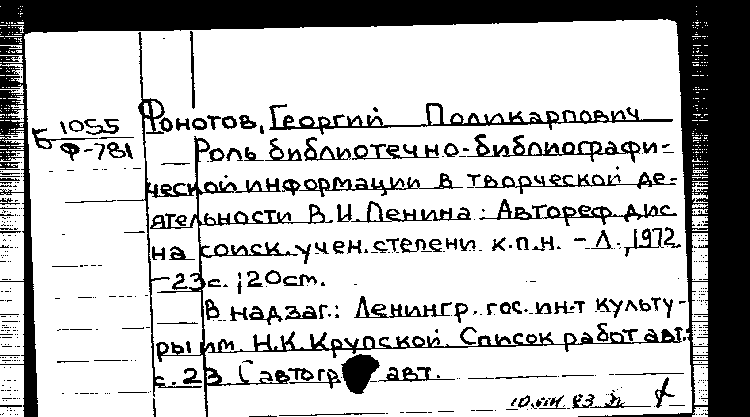 Б 1055
Ф-781
Фонотов, Георгий Поликарпович
Роль библиотечно-библиографи-
ческой информации в творческой де-
ятельности В.И.Ленина: Автореф. дис
на соиск. учен. степени к.п.н. - Л., 1972.
-23с.; 20см.
В надзаг.: Ленингр. гос. ин-т культу-
ры им. Н.К.Крупской. Список работ авт.:
с.23 С автогр авт.